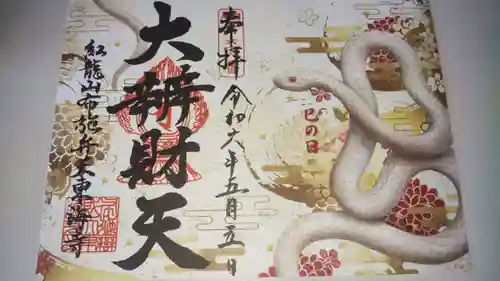 奉拝
令和六年五月五日
巳の日
大辨財天
紅龍山布施弁天東海寺